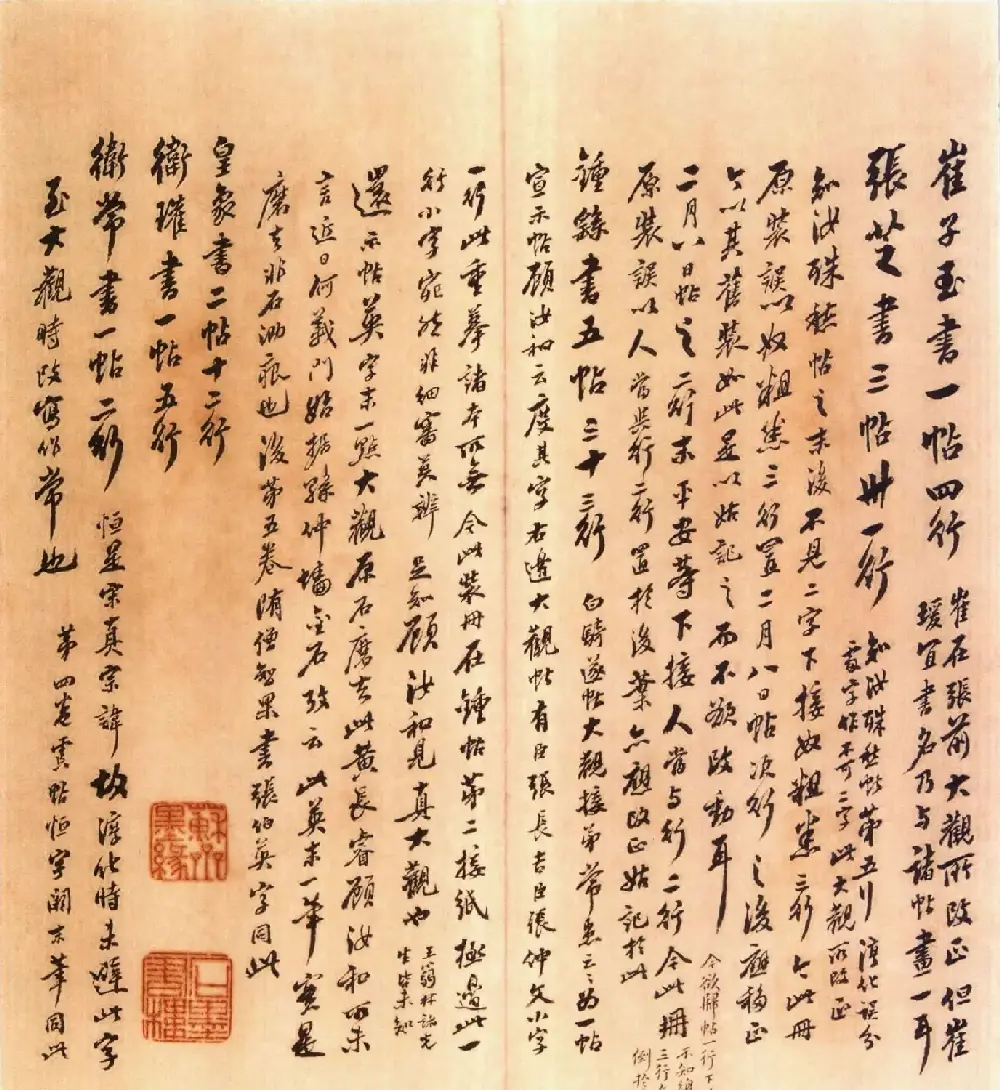 崔子玉書一帖四行
崔在張前大觀所改正但崔
瑗宜書名乃与諸帖畫一耳
張芝書三帖卅一行
知汝殊愁帖第五行淳化誤分
字作不可二字此大觀所改正
知汝殊愁帖之末後不見二字下接奴粗恙三行今此冊
原裝誤以奴粗恙三行置二月八日帖次行之後應移正
今以其舊裝如此是以姑記之而不欲改動耳
今欲歸帖一行下
二月八日帖之二行末平安等下接人當与行二行今此冊
不知
三行
倒於
原裝誤以人當与行二行置於後葉亦應改正姑記於此
鍾繇書五帖三十三行
白騎遂帖大觀接弟常患云云為一帖
宣示帖顧汝和云度其字右邊大觀帖有臣張長吉臣張仲文小字
一行此重摹諸本所無今此裝冊在鍾帖第二接紙極邊此一
行小字宛然非細審莫辨足知顧汝和見真大觀也
王蒻林諸先
生皆未知
還示帖英字末一點大觀原石磨去此黃長睿顧汝和所未
言近日何義門始据孫仲墻金石效云此英末一筆實是
磨去非石泐痕也後第五卷隋僧智果書張伯英字同此
皇象書二帖十二行
衛瓘書一帖五行
衛常書一帖二行
恒是宋真宗諱故淳化時未避此字
至大觀時改寫作常也
第四卷虞帖恒字闕末筆同此
蘇齋墨緣
石墨書樓